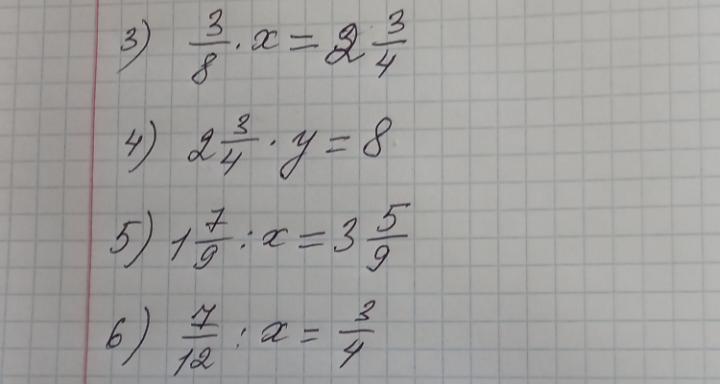 3) 3/8 · x = 2 3/4
4) 2 3/4 · y = 8
5) 1 7/9 : x = 3 5/9
6) 7/12 : x = 3/4